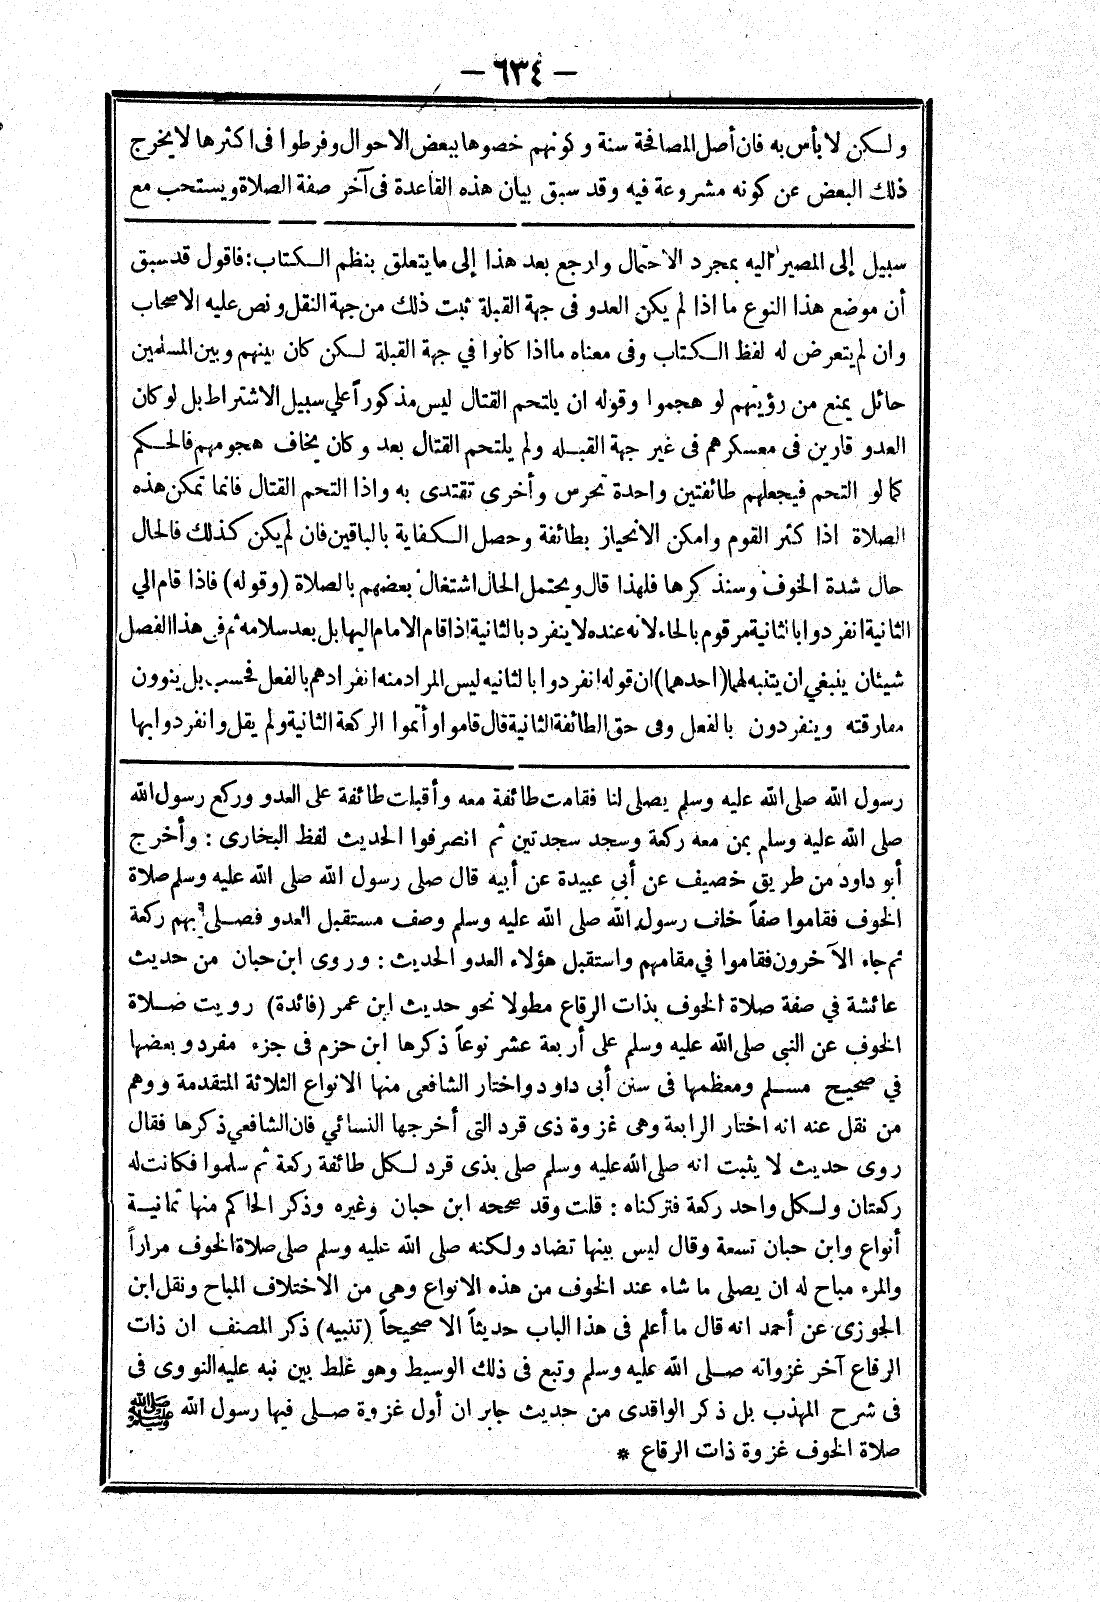 — ٦٣٤ —
ولكن لا بأس به فان أصل المصافحة سنة وكونهم خصوها ببعض الاحوال وفرطوا فى اكثرها لا يخرج
ذلك البعض عن كونه مشروعة فيه وقد سبق بيان هذه القاعدة فى آخر صفة الصلاة ويستحب مع
سبيل إلى المصير اليه بمجرد الاحتمال وارجع بعد هذا إلى ما يتعلق بنظم الكتاب : فاقول قد سبق
أن موضع هذا النوع ما اذا لم يكن العدو فى جهة القبلة ثبت ذلك من جهة النقل ونص عليه الاصحاب
وان لم يتعرض له لفظ الكتاب وفى معناه ما اذا كانوا في جهة القبلة لكن كان بينهم وبين المسلمين
حائل يمنع من رؤيتهم لو هجموا وقوله ان يلتحم القتال ليس مذكوراً علي سبيل الاشتراط بل لو كان
العدو قارين فى معسكرهم فى غير جهة القبله ولم يلتحم القتال بعد وكان يخاف هجومهم فالحكم
كما لو التحم فيجعلهم طائفتين واحدة تحرس وأخرى تقتدى به واذا التحم القتال فانما تمكن هذه
الصلاة اذا كثر القوم وامكن الانحياز بطائفة وحصل الكفاية بالباقين فان لم يكن كذلك فالحال
حال شدة الخوف وسنذكرها فلهذا قال ويحتمل الحال اشتغال بعضهم بالصلاة (وقوله) فاذا قام الي
الثانية انفردوا بالثانية مرقوم بالحاء لانه عنده لا ينفرد بالثانية اذا قام الامام اليها بل بعد سلامه ثم فى هذا الفصل
شيئان ينبغي ان يتنبه لهما (احدهما) ان قوله انفردوا بالثانيه ليس المراد منه انفرادهم بالفعل فحسب بل ينوون
مفارقته وينفردون بالفعل وفى حق الطائفة الثانية قال قاموا وأتموا الركعة الثانية ولم يقل وانفردوا بها
رسول الله صلى الله عليه وسلم يصلى لنا فقامت طائفة معه وأقبلت طائفة على العدو وركع رسول الله
صلى الله عليه وسلم بمن معه ركعة وسجد سجدتين ثم انصرفوا الحديث لفظ البخارى : وأخرج
أبو داود من طريق خصيف عن أبي عبيدة عن أبيه قال صلى رسول الله صلى الله عليه وسلم صلاة
الخوف فقاموا صفاً خلف رسول الله صلى الله عليه وسلم وصف مستقبل العدو فصلى بهم ركعة
ثم جاء الآخرون فقاموا في مقامهم واستقبل هؤلاء العدو الحديث : وروى ابن حبان من حديث
عائشة في صفة صلاة الخوف بذات الرقاع مطولا نحو حديث ابن عمر (فائدة) رويت صلاة
الخوف عن النبي صلى الله عليه وسلم على أربعة عشر نوعاً ذكرها ابن حزم فى جزء مفرد وبعضها
في صحيح مسلم ومعظمها فى سنن أبى داود واختار الشافعى منها الانواع الثلاثة المتقدمة ووهم
من نقل عنه انه اختار الرابعة وهى غزوة ذى قرد التى أخرجها النسائي فان الشافعي ذكرها فقال
روى حديث لا يثبت انه صلى الله عليه وسلم صلى بذى قرد لكل طائفة ركعة ثم سلموا فكانت له
ركعتان ولكل واحد ركعة فتركناه : قلت وقد صححه ابن حبان وغيره وذكر الحاكم منها ثمانية
أنواع وابن حبان تسعة وقال ليس بينها تضاد ولكنه صلى الله عليه وسلم صلى صلاة الخوف مراراً
والمرء مباح له ان يصلى ما شاء عند الخوف من هذه الانواع وهى من الاختلاف المباح ونقل ابن
الجوزى عن أحمد انه قال ما أعلم فى هذا الباب حديثاً الا صحيحاً (تنبيه) ذكر المصنف ان ذات
الرقاع آخر غزواته صلى الله عليه وسلم وتبع فى ذلك الوسيط وهو غلط بين نبه عليه النووى فى
فى شرح المهذب بل ذكر الواقدى من حديث جابر ان أول غزوة صلى فيها رسول الله ﷺ
صلاة الخوف غزوة ذات الرقاع *